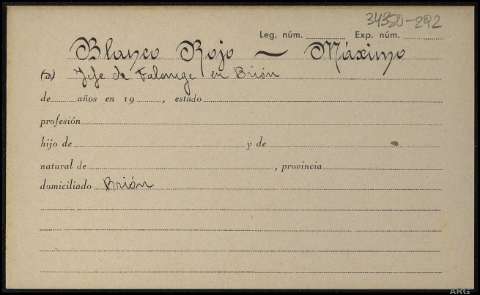 34350-292
Leg. núm. Exp. núm.
Blanco Rojo — Máximo
(a) Jefe de Falange en Brión
de años en 19 , estado
profesión
hijo de y de
natural de , provincia
domiciliado Brión
ARG